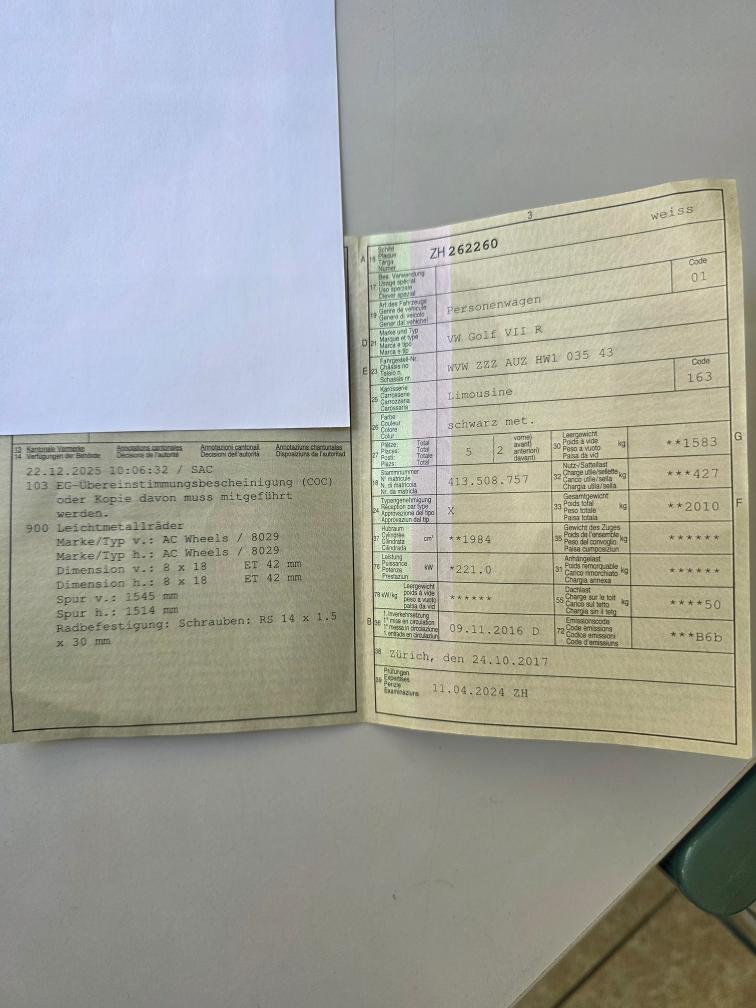 13 Kantonale Vermerke Annotations cantonales Annotazioni cantonali Annotaziuns chantunalas
14 Verfügungen der Behörde Décisions de l'autorité Decisioni dell'autorità Disposiziuns da l'autoritad
22.12.2025 10:06:32 / SAC
103 EG-Übereinstimmungsbescheinigung (COC)
oder Kopie davon muss mitgeführt
werden.
900 Leichtmetallräder
Marke/Typ v.: AC Wheels / 8029
Marke/Typ h.: AC Wheels / 8029
Dimension v.: 8 x 18 ET 42 mm
Dimension h.: 8 x 18 ET 42 mm
Spur v.: 1545 mm
Spur h.: 1514 mm
Radbefestigung: Schrauben: RS 14 x 1.5
x 30 mm
3
weiss
A 15 Schild
Plaque
Targa
Numer
ZH 262260
17 Bes. Verwendung
Usage spécial
Uso speciale
Diever spezial
Code
01
19 Art des Fahrzeugs
Genre de véhicule
Genere di veicolo
Gener dal vehichel
Personenwagen
D 21 Marke und Typ
Marque et type
Marca e tipo
Marca e tip
VW Golf VII R
E 23 Fahrgestell-Nr.
Châssis no
Telaio n.
Schassis nr.
WVW ZZZ AUZ HW1 035 43
25 Karosserie
Carrosserie
Carrozzeria
Carossaria
Limousine
Code
163
26 Farbe
Couleur
Colore
Colur
schwarz met.
27 Plätze: Total
Places: Total
Posti: Totale
Plazs: Total
5
2
vorne)
avant)
anteriori)
davant)
30 Leergewicht
Poids à vide
Peso a vuoto
Paisa da vid
kg
**1583
G
18 Stammnummer
N° matricule
N. di matricola
Nr. da matricla
413.508.757
32 Nutz-/Sattellast
Charge utile/sellette
Carico utile/sella
Chargia utila/sella
kg
***427
24 Typengenehmigung
Réception par type
Approvazione del tipo
Approvaziun dal tip
X
33 Gesamtgewicht
Poids total
Peso totale
Paisa totala
kg
**2010
F
37 Hubraum
Cylindrée
Cilindrata
Cilindrada
cm³
**1984
35 Gewicht des Zuges
Poids de l'ensemble
Peso del convoglio
Paisa cumposiziun
kg
******
76 Leistung
Puissance
Potenza
Prestaziun
kW
*221.0
31 Anhängelast
Poids remorquable
Carico rimorchiato
Chargia annexa
kg
******
78 kW/kg
Leergewicht
poids à vide
peso a vuoto
paisa da vid
******
55 Dachlast
Charge sur le toit
Carico sul tetto
Chargia sin il tetg
kg
****50
B 36 1. Inverkehrsetzung
1re mise en circulation
1a messa in circolazione
1. entrada en circulaziun
09.11.2016 D
72 Emissionscode
Code émissions
Codice emissioni
Code d'emissiuns
***B6b
38 Zürich, den 24.10.2017
39 Prüfungen
Expertises
Perizie
Examinaziuns
11.04.2024 ZH